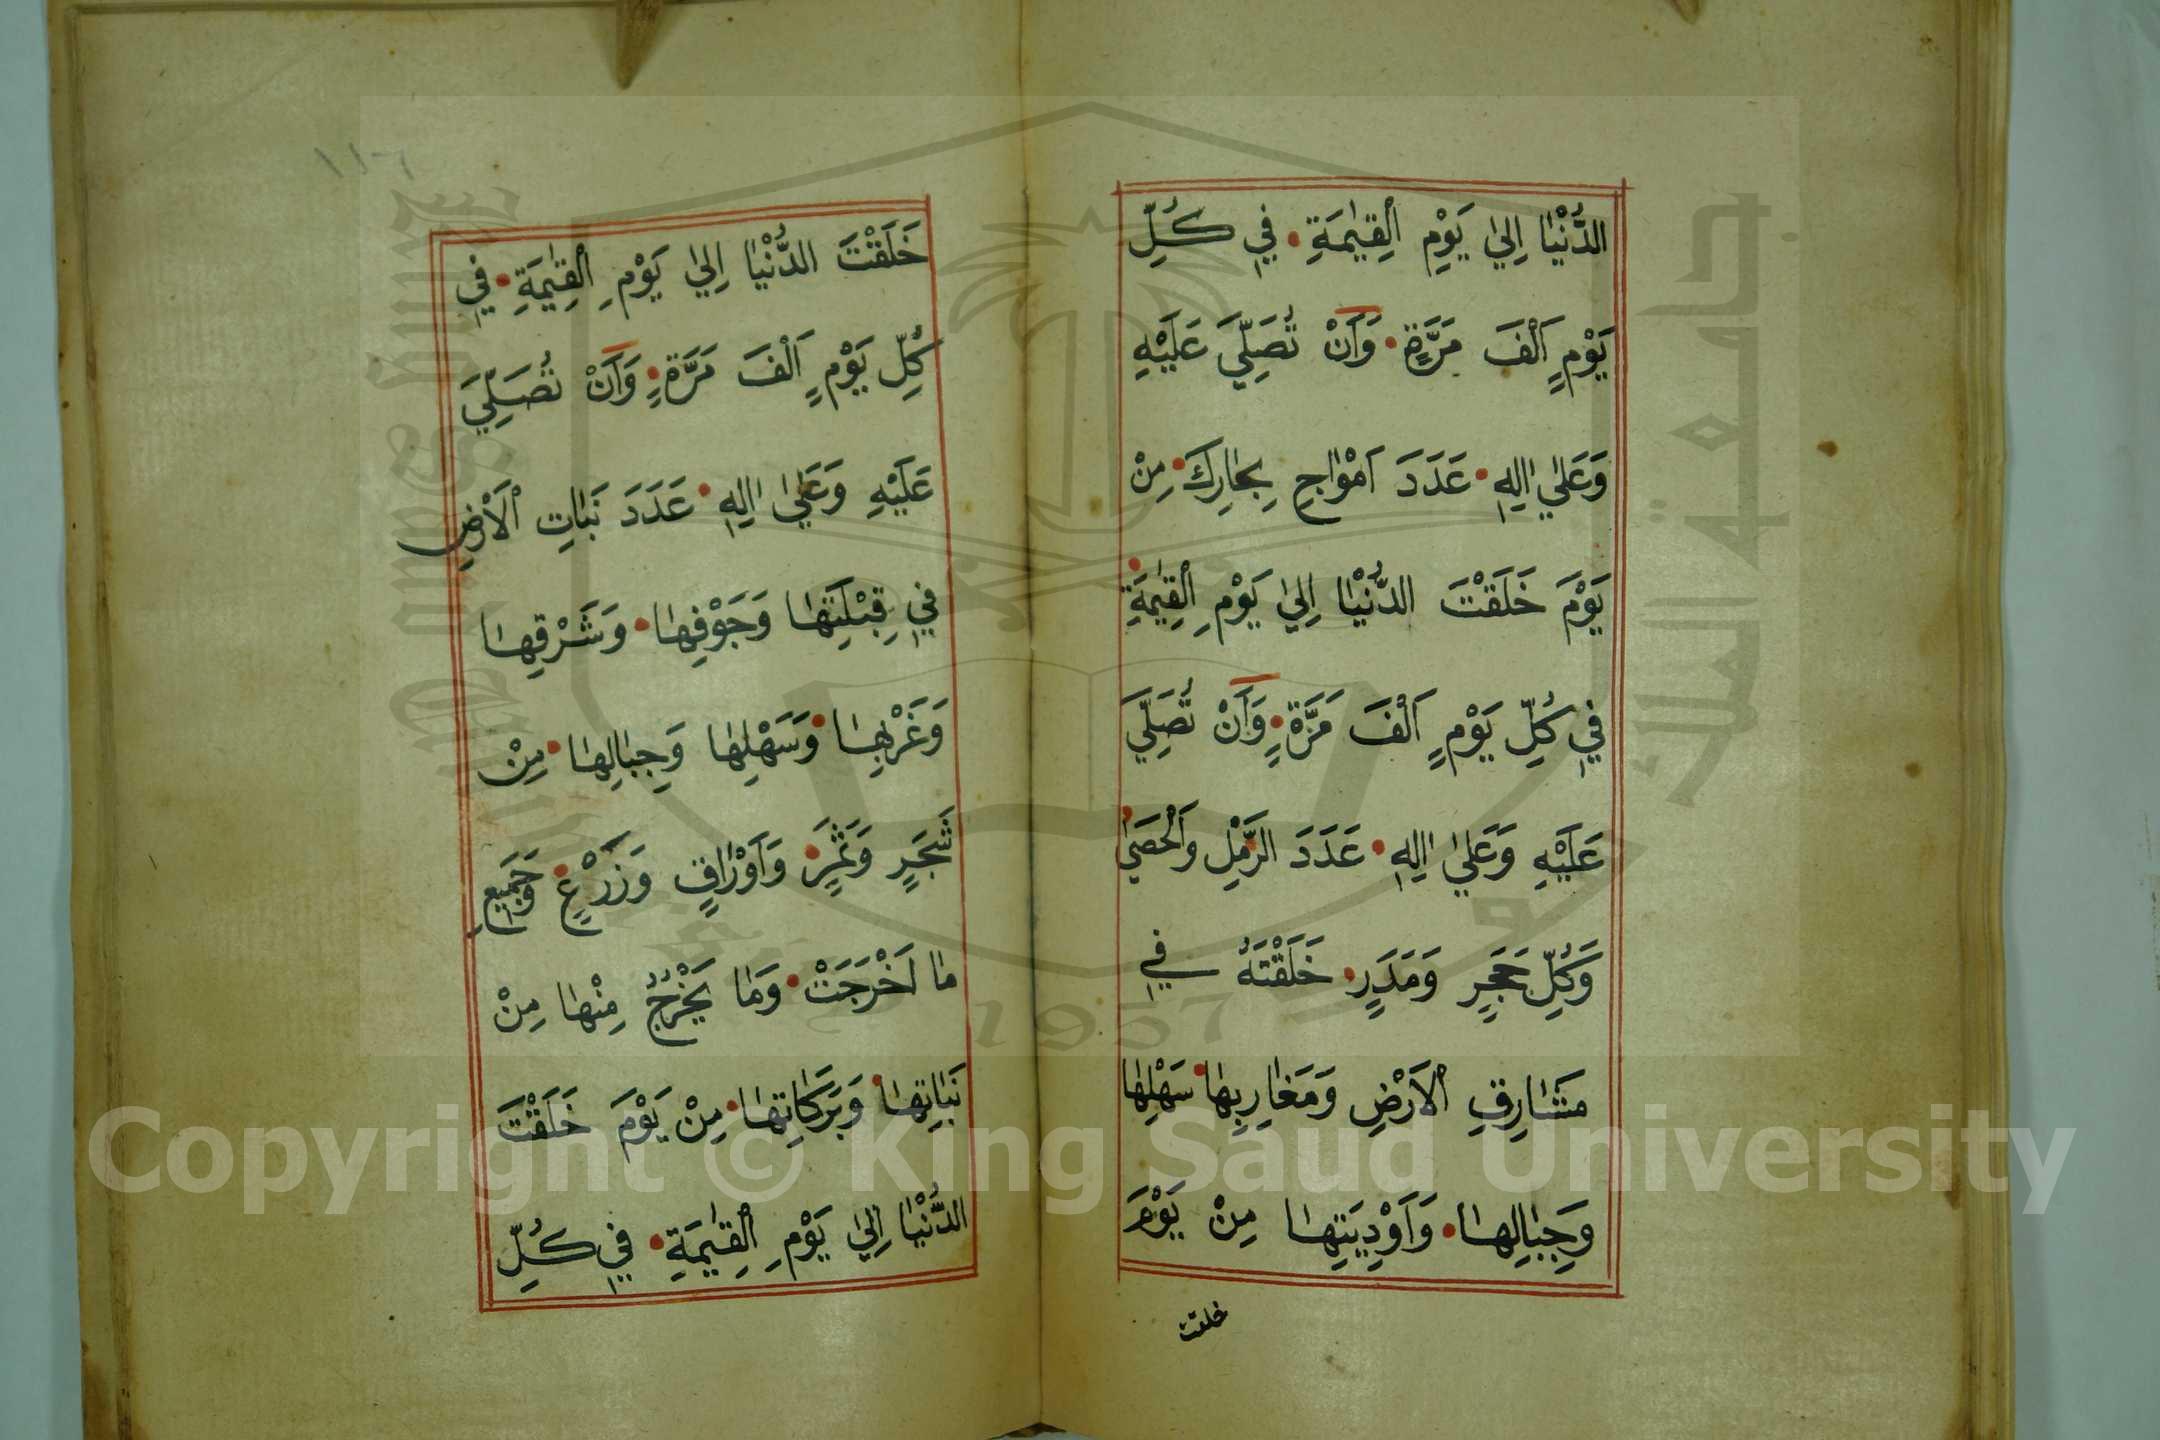 الدُّنْيَا اِلىٰ يَوْمِ الْقِيٰمَةِ • فِي كُلِّ
يَوْمٍ اَلْفَ مَرَّةٍ • وَاَنْ تُصَلِّيَ عَلَيْهِ
وَعَلىٰ اٰلِهٖ • عَدَدَ اَمْوَاجِ بِحَارِكَ • مِنْ
يَوْمَ خَلَقْتَ الدُّنْيَا اِلىٰ يَوْمِ الْقِيٰمَةِ •
فِي كُلِّ يَوْمٍ اَلْفَ مَرَّةٍ • وَاَنْ تُصَلِّيَ
عَلَيْهِ وَعَلىٰ اٰلِهٖ • عَدَدَ الرَّمْلِ وَالْحَصىٰ •
وَكُلِّ حَجَرٍ وَمَدَرٍ • خَلَقْتَهُ فِي
مَشَارِقِ الْاَرْضِ وَمَغَارِبِهَا • سَهْلِهَا
وَجِبَالِهَا • وَاَوْدِيَتِهَا مِنْ يَوْمَ
خلقت
١١٦
خَلَقْتَ الدُّنْيَا اِلىٰ يَوْمِ الْقِيٰمَةِ • فِي
كُلِّ يَوْمٍ اَلْفَ مَرَّةٍ • وَاَنْ تُصَلِّيَ
عَلَيْهِ وَعَلىٰ اٰلِهٖ • عَدَدَ نَبَاتِ الْاَرْضِ
فِي قِبْلَتِهَا وَجَوْفِهَا • وَشَرْقِهَا
وَغَرْبِهَا • وَسَهْلِهَا وَجِبَالِهَا • مِنْ
شَجَرٍ وَثَمَرٍ • وَاَوْرَاقٍ وَزَرْعٍ • وَجَمِيعِ
مَا اَخْرَجَتْ • وَمَا يَخْرُجُ مِنْهَا مِنْ
نَبَاتِهَا • وَبَرَكَاتِهَا • مِنْ يَوْمَ خَلَقْتَ
الدُّنْيَا اِلىٰ يَوْمِ الْقِيٰمَةِ • فِي كُلِّ
جامعة الملك سعود
King Saud University
1957
Copyright © King Saud University